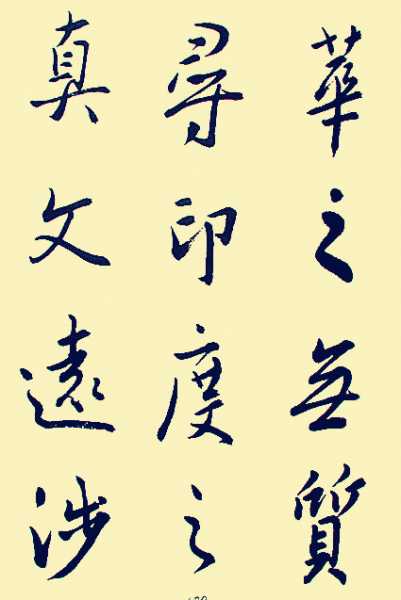 華之無質
尋印度之
真文遠涉